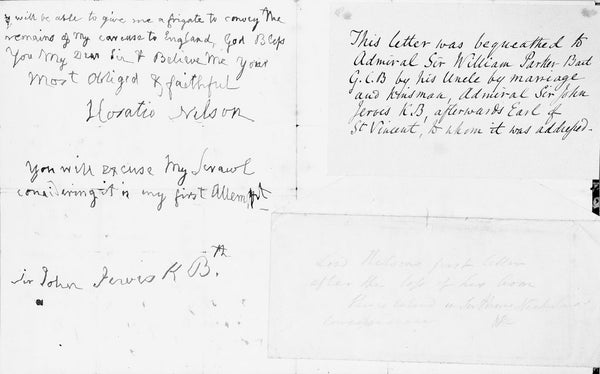 will be able to give me a frigate to convey the
remains of my carcase to England, God Bless
You My Dear Sir & Believe Me Your
Most Obliged & faithful
Horatio Nelson
You will excuse My Scrawl
considering it is my first Attempt
Sir John Jervis K B.th
This letter was bequeathed to
Admiral Sir William Parker Bart
G.C.B by his Uncle by marriage
and kinsman, Admiral Sir John
Jervis K.B, afterwards Earl of
St Vincent, to whom it was addressed.
Lord Nelsons first letter
after the loss of his arm